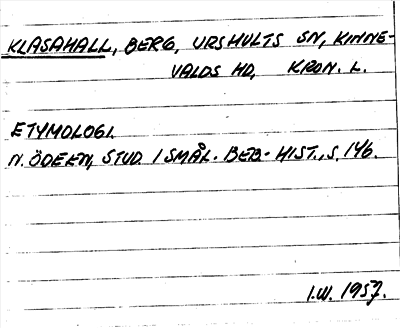 KLASAHALL, BERG, URSHULTS SN, KINNE-
VALDS HD, KRON. L.
ETYMOLOGI.
N. ÖDEEN, STUD. I SMÅL. BEB.-HIST., S. 146.
I.W. 1957.